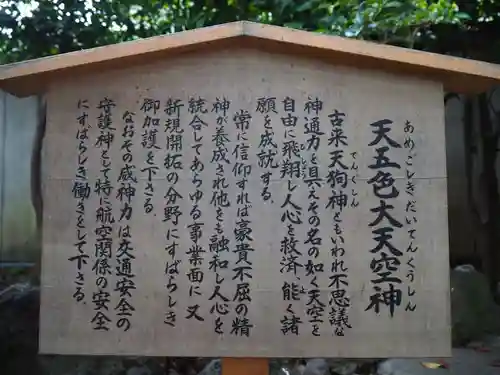 天五色大天空神
あめごしきだいてんくうしん
古来天狗神ともいわれ不思議な
てんぐしん
神通力を具えその名の如く天空を
自由に飛翔し人心を救済 能く諸
ひしょう
よ
願を成就する
常に信仰すれば豪貴不屈の精
神が養成され他をも融和し人心を
統合してあらゆる事業面に 又
新規開拓の分野にすばらしき
御加護を下さる
なおその威神力は交通安全の
守護神として特に航空関係の安全
にすばらしき働きをして下さる